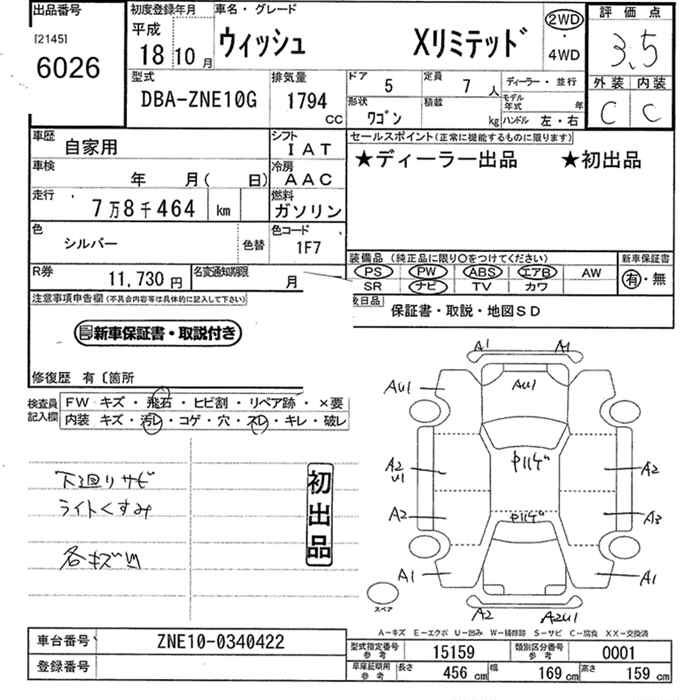 出品番号
[2145]
6026
初度登録年月
平成
18 10 月
車名・グレード
ウィッシュ Xリミテッド
2WD
・
4WD
評価点
3.5
外装 内装
C C
型式
DBA-ZNE10G
排気量
1794
CC
ドア 5
定員 7 人
ディーラー・並行
形状
ワゴン
積載
kg
モデル年式 年
ハンドル 左・右
車歴
自家用
シフト
IAT
車検
年 月( 日)
冷房
AAC
走行
7万8千464 km
燃料
ガソリン
色
シルバー
色替
色コード
1F7
R券
11,730 円
名変通知期限
月
セールスポイント(正常に機能するものに限ります)
★ディーラー出品 ★初出品
装備品(純正品に限り○をつけてください)
PS PW ABS エアB AW
SR ナビ TV カワ
新車保証書
有・無
後日品
保証書・取説・地図SD
注意事項申告欄(不具合内容等は具体的に記入して下さい)
新車保証書・取説付き
修復歴 有〔箇所
検査員記入欄
FW キズ・飛石・ヒビ割・リペア跡・×要
内装 キズ・汚レ・コゲ・穴・スレ・キレ・破レ
下廻りサビ
ライトくすみ
各キズ凹
初出品
A1 A1
AU1 AU1
A2
U1
A2
A2 A3
A1 A1
A2 A2U1
スペア
A-キズ E-エクボ U-凹み W-補修跡 S-サビ C-腐食 XX-交換済
車台番号 ZNE10-0340422
登録番号
型式指定番号
参考
15159
類別区分番号
参考
0001
車庫証明用
参考
長さ 456 cm 幅 169 cm 高さ 159 cm